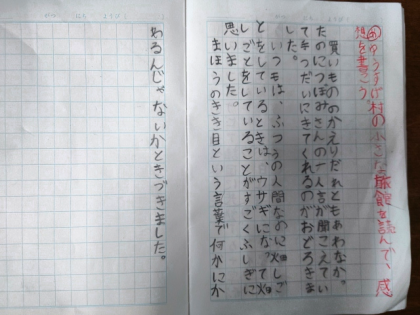 めゆうすげ村の小さな旅館を読んで、感
想を書こう
買いもののかえりだれともあわなか。
たのにつぼみさんの一人言が聞こえてい
て手つだいにきてくれるのがおどろきま
した。
いつもは、ふつうの人間なのに畑しご
とをしているときは、ウサギにな。て畑
しごとをしていることがすごくふしぎに
思いました。
まほうのきき目という言葉で何かにか
わるんじゃないかときづきました。